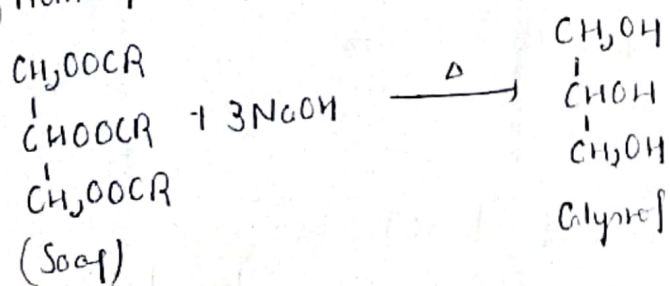 CH₂OOCR
CHOOCR + 3NaOH Δ →
CH₂OOCR
(Soap)
CH₂OH
CHOH
CH₂OH